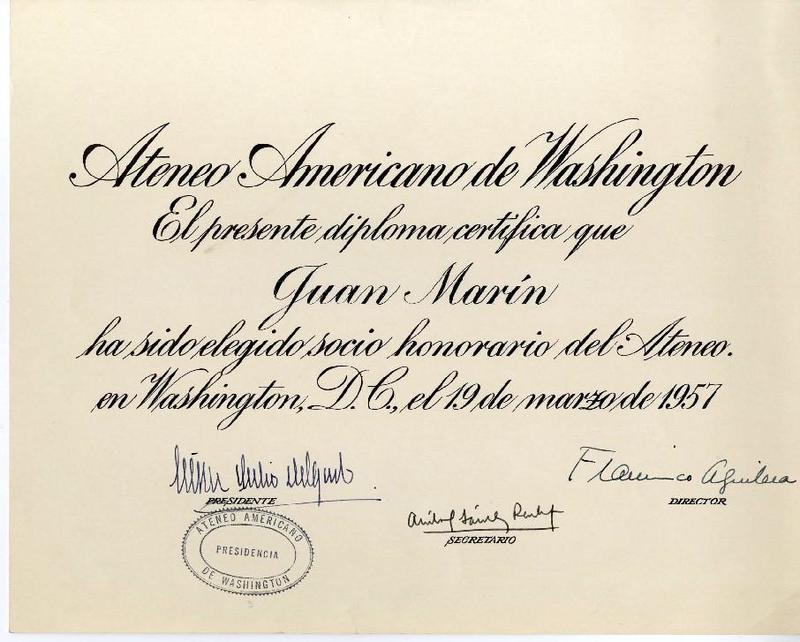 Ateneo Americano de Washington
El presente diploma certifica que
Juan Marín
ha sido elegido socio honorario del Ateneo.
en Washington, D.C., el 19 de marzo de 1957
Julio
PRESIDENTE
Aguilera
DIRECTOR
Sánchez
SECRETARIO
ATENEO AMERICANO
PRESIDENCIA
DE WASHINGTON